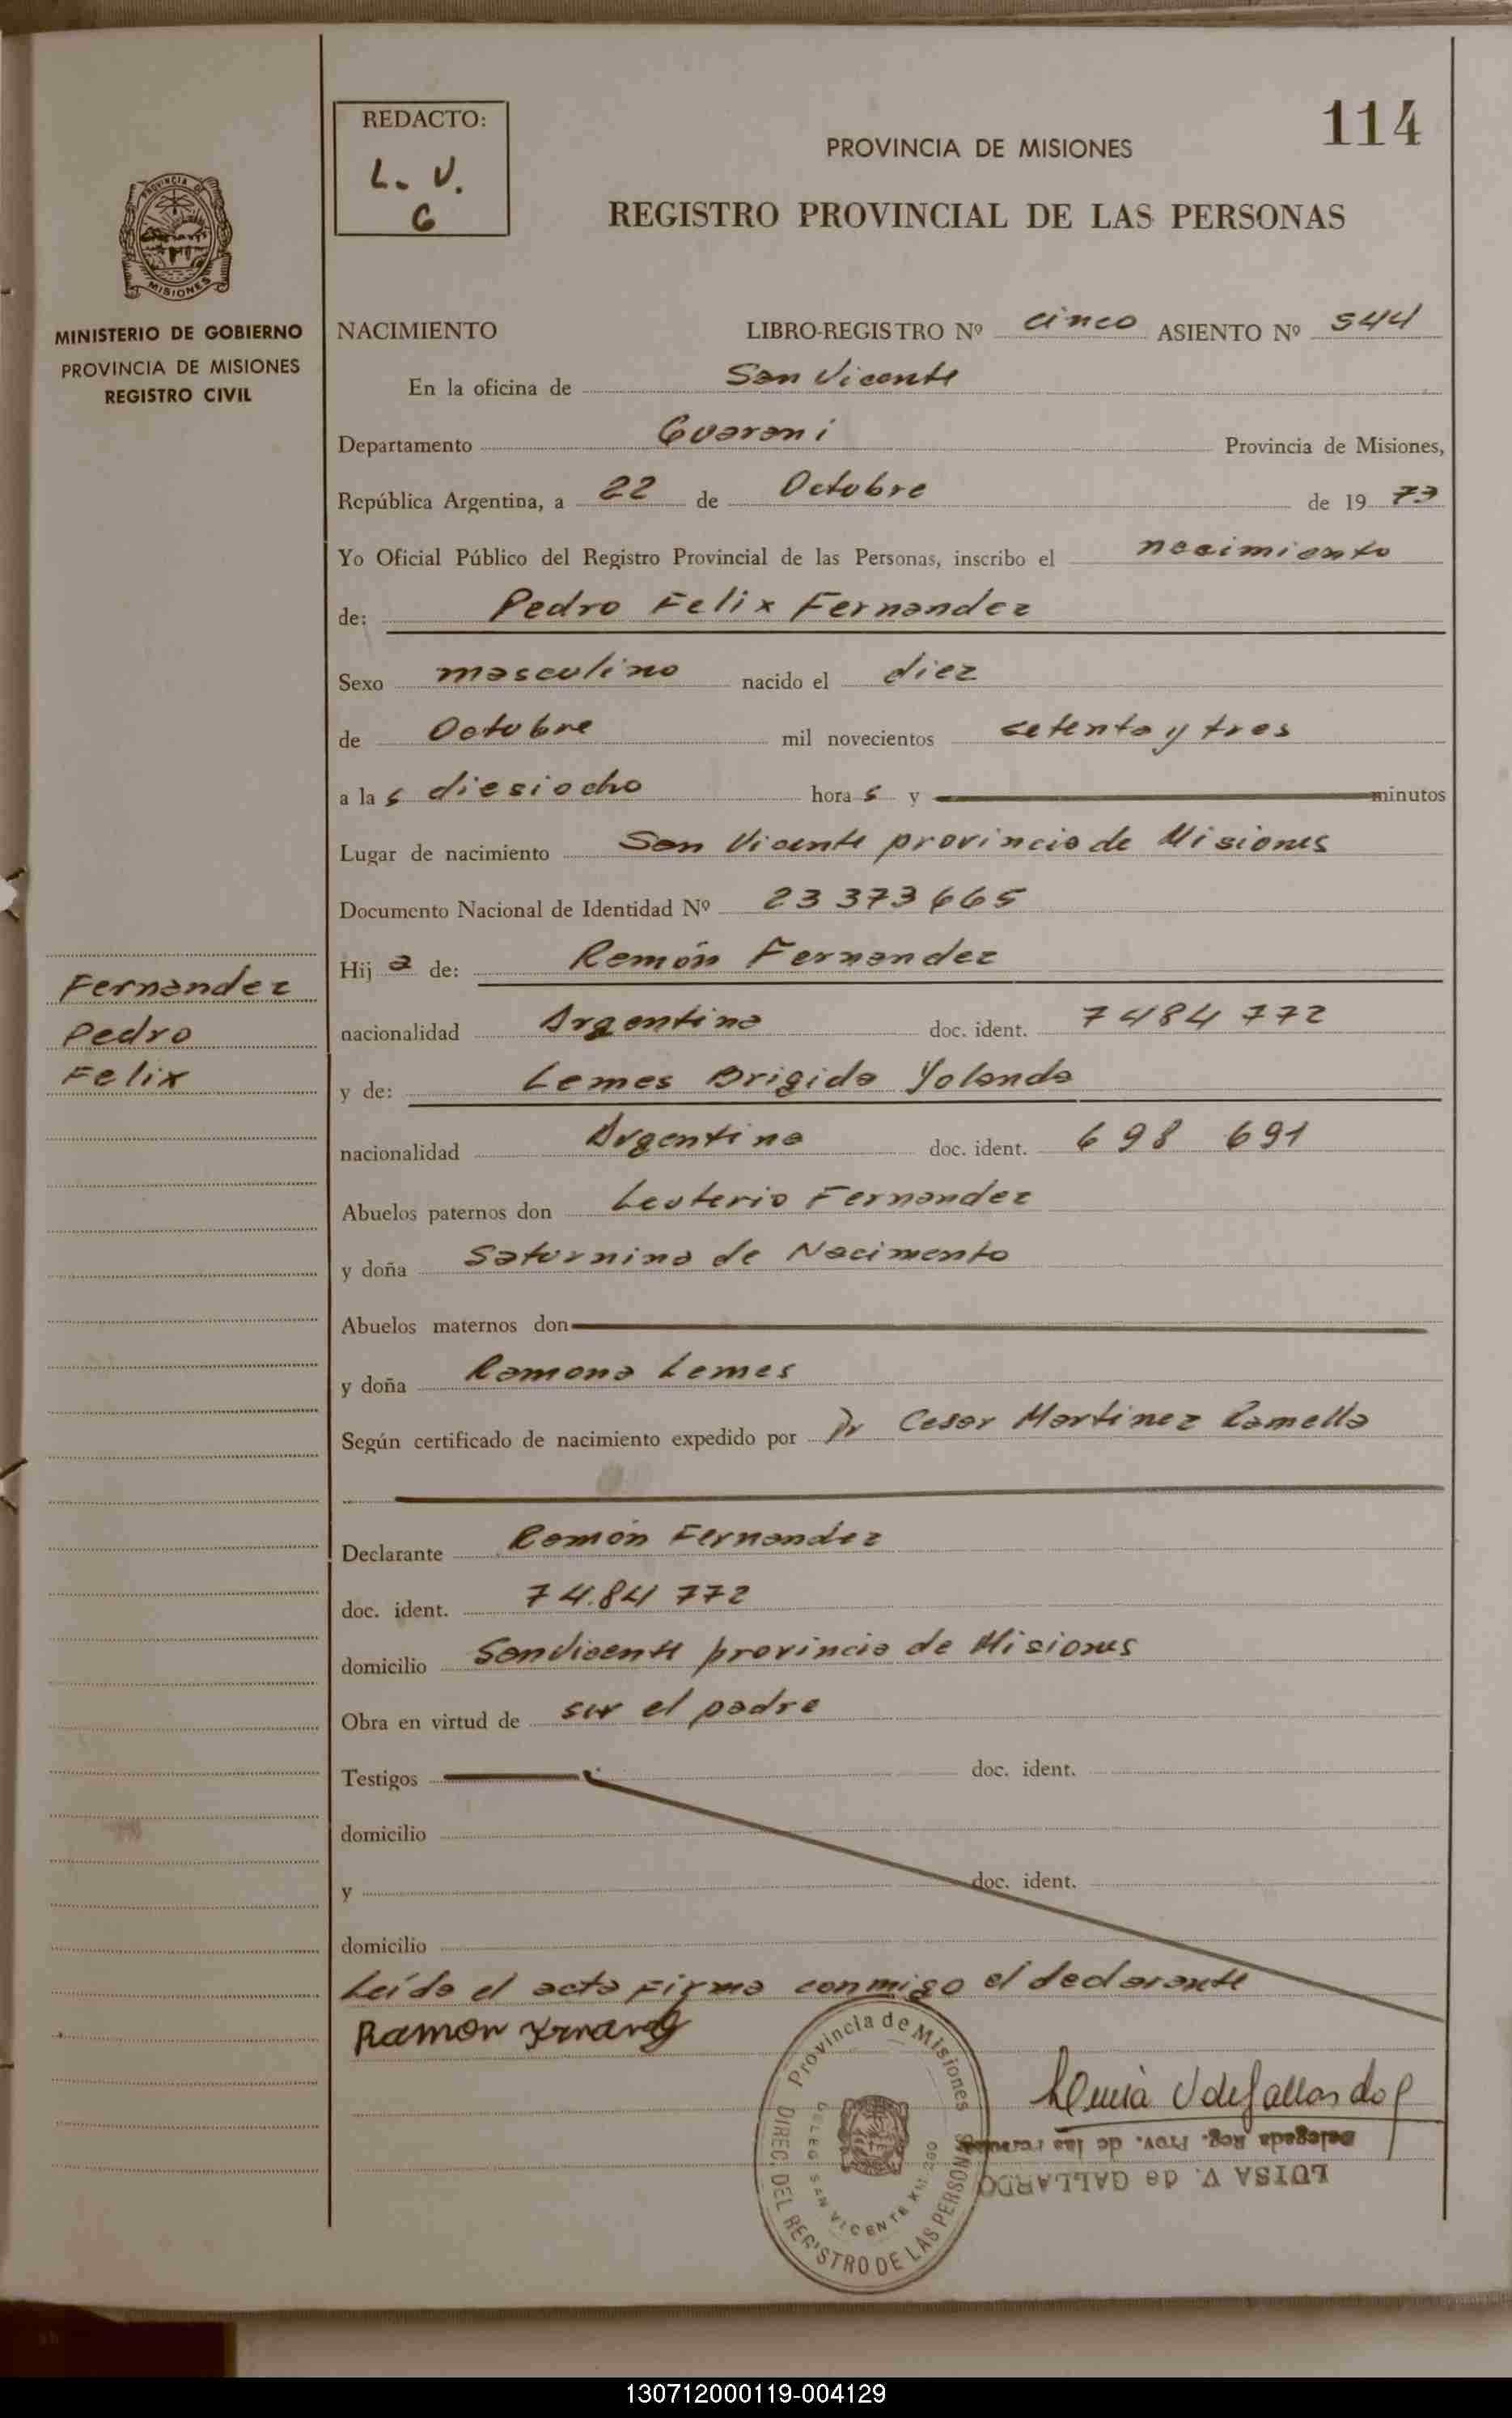 114
REDACTO:
L. V.
G
PROVINCIA DE MISIONES
REGISTRO PROVINCIAL DE LAS PERSONAS
PROVINCIA DE
MISIONES
MINISTERIO DE GOBIERNO
PROVINCIA DE MISIONES
REGISTRO CIVIL
NACIMIENTO LIBRO-REGISTRO Nº cinco ASIENTO Nº 544
En la oficina de San Vicente
Departamento Guarani Provincia de Misiones,
República Argentina, a 22 de Octubre de 19 73
Yo Oficial Público del Registro Provincial de las Personas, inscribo el nacimiento
de: Pedro Felix Fernandez
Sexo masculino nacido el diez
de Octubre mil novecientos setenta y tres
a la s diesiocho hora s y minutos
Lugar de nacimiento San Vicente provincia de Misiones
Documento Nacional de Identidad Nº 23 373 665
Hij a de: Ramón Fernandez
nacionalidad Argentina doc. ident. 7484 772
y de: Lemes Brigida Yolanda
nacionalidad Argentina doc. ident. 698 691
Abuelos paternos don Leuterio Fernandez
y doña Saturnina de Nacimento
Abuelos maternos don
y doña Ramona Lemes
Según certificado de nacimiento expedido por Dr Cesar Martinez Ramella
Declarante Ramón Fernandez
doc. ident. 74.84 772
domicilio San Vicente provincia de Misiones
Obra en virtud de ser el padre
Testigos doc. ident.
domicilio
y doc. ident.
domicilio
Leída el acta firma conmigo el declarante
Fernandez
Pedro
Felix
Ramon
Provincia de Misiones
DIREC. DEL REGISTRO DE LAS PERSONAS
DELEG. SAN VICENTE KM. 260
Luisa V de Gallardo
Delegada Reg. Prov. de las Personas
LUISA V. de GALLARDO
130712000119-004129